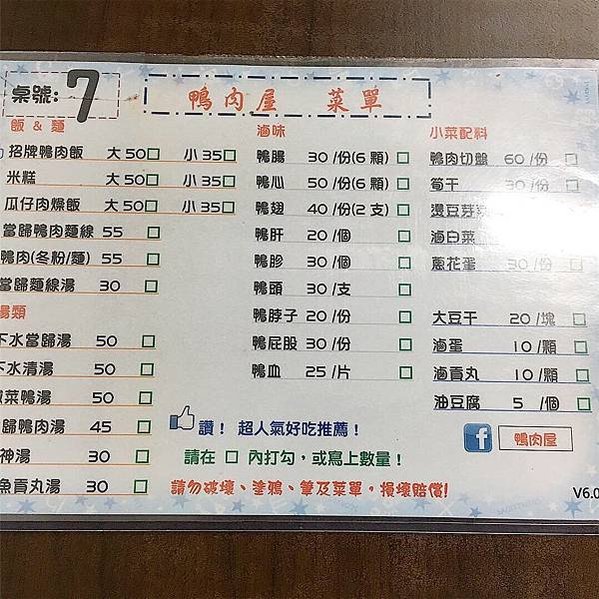 桌號: 7
鴨肉屋 菜單
飯 & 麵
招牌鴨肉飯 大 50□ 小 35□
米糕 大 50□ 小 35□
瓜仔肉燥飯 大 50□ 小 35□
當歸鴨肉麵線 55 □
鴨肉(冬粉/麵) 55 □
當歸麵線湯 30 □
湯類
下水當歸湯 50 □
下水清湯 50 □
菜鴨湯 50 □
歸鴨肉湯 45 □
神湯 30 □
魚貢丸湯 30 □
滷味
鴨腸 30 /份(6 顆) □
鴨心 50 /份(6 顆) □
鴨翅 40 /份(2 支) □
鴨肝 20 /個 □
鴨胗 30 /個 □
鴨頭 30 /支 □
鴨脖子 20 /份 □
鴨屁股 30 /份 □
鴨血 25 /片 □
小菜配料
鴨肉切盤 60 /份 □
筍干 30 /份 □
燙豆芽
滷白菜
蔥花蛋 30 /份 □
大豆干 20 /塊 □
滷蛋 10 /顆 □
滷貢丸 10 /顆 □
油豆腐 5 /個 □
讚! 超人氣好吃推薦!
請在 □ 內打勾,或寫上數量!
f 鴨肉屋
請勿破壞、塗鴉、筆及菜單,損壞賠償!
V6.0